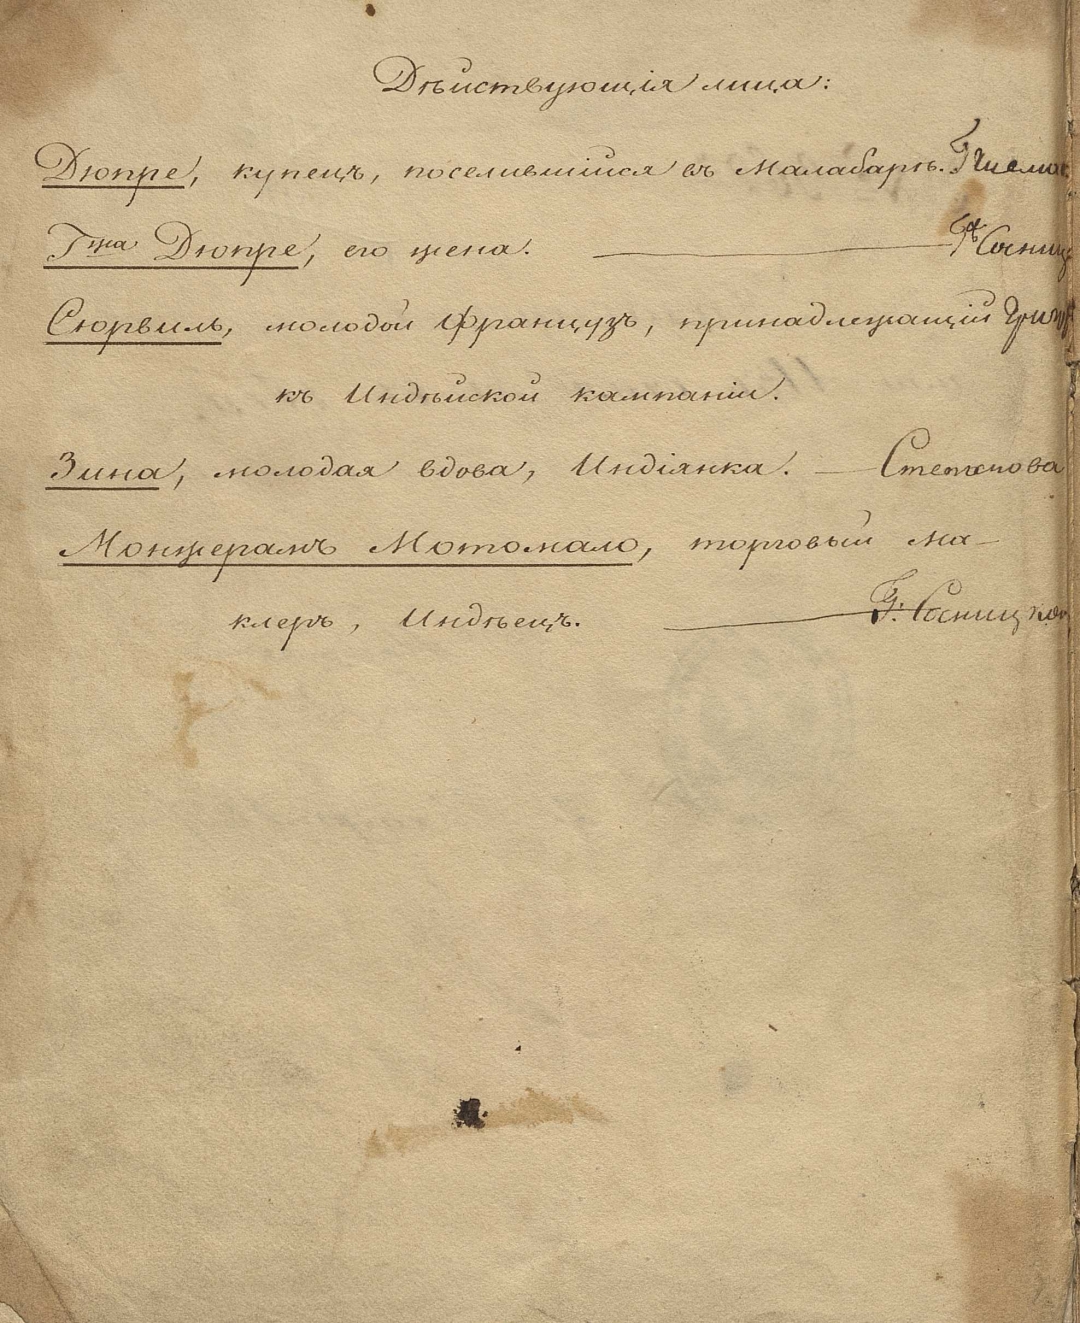 Дѣйствующія лица:
Дюпре, купецъ, поселившійся въ Малабарѣ. Г
Гжа Дюпре, его жена. — Сосниц
Сюрвиль, молодой Французъ, принадлежащій
къ Индѣйской кампаніи.
Зина, молодая вдова, Индіянка. — Степанова
Монжерамъ Мотомало, торговый ма-
клеръ, Индѣецъ. — Г. Сосницкой